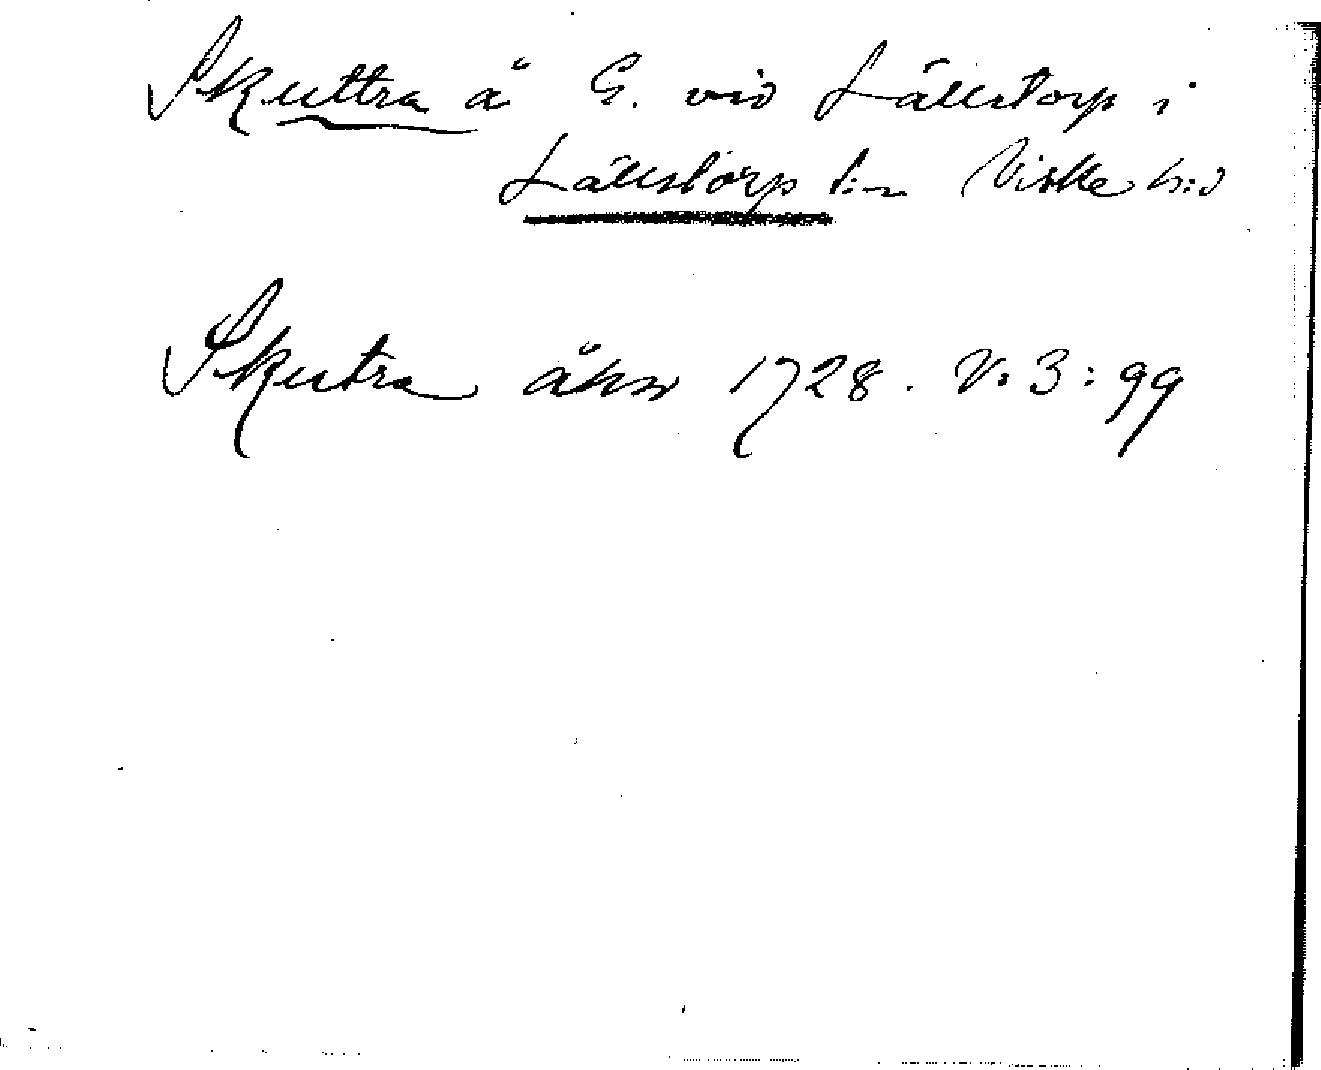 Skuttra å G. vid Lällstorp i
Lällstorp s:n Viske h:d
Skutra åhn 1728. V: 3: 99